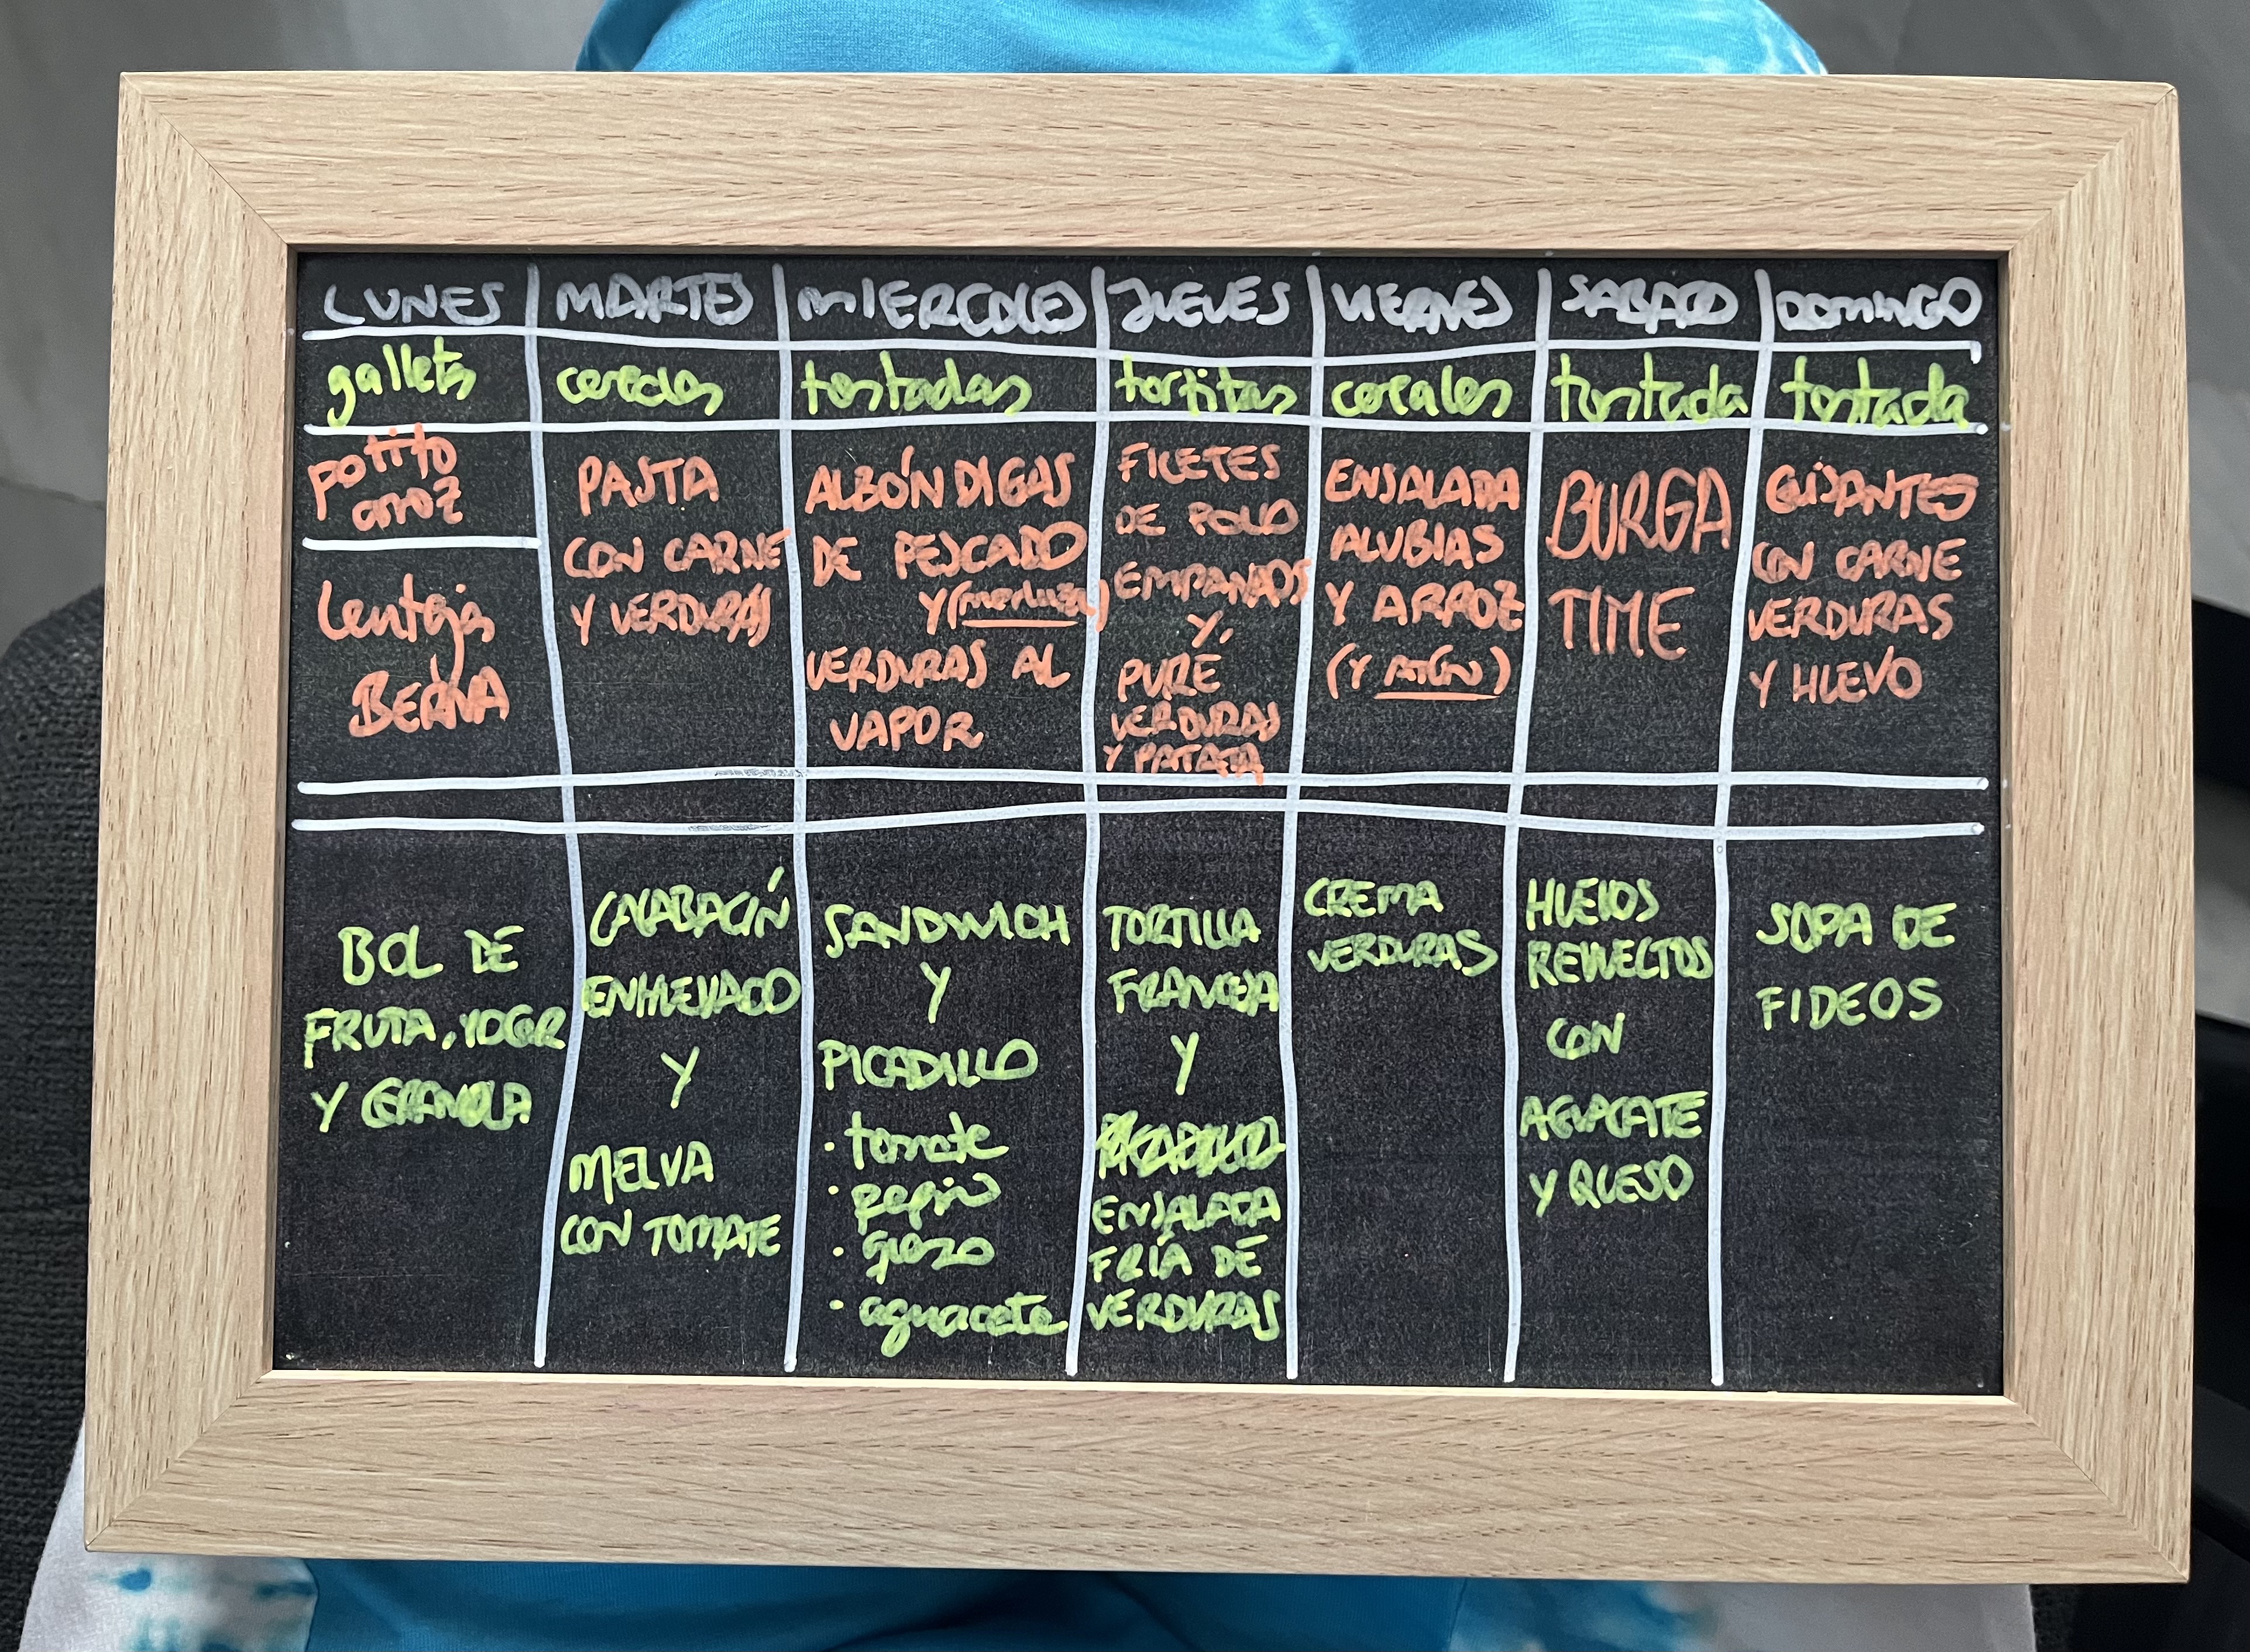 LUNES MARTES MIERCOLES JUEVES VIERNES SABADO DOMINGO
galletas cereales tostadas tortitas cereales tostada tostada
potito
arroz
Lenteja
BERNA
PASTA
CON CARNE
Y VERDURAS
ALBÓNDIGAS
DE PESCADO
Y (merluza)
VERDURAS AL
VAPOR
FILETES
DE POLLO
EMPANADOS
Y
PURÉ
VERDURAS
Y PATATA
ENSALADA
ALUBIAS
Y ARROZ
(Y ATÚN)
BURGA
TIME
GUISANTES
CON CARNE
VERDURAS
Y HUEVO
BOL DE
FRUTA, YOGUR
Y GRANOLA
CALABACÍN
ENHUEVADO
Y
MELVA
CON TOMATE
SANDWICH
Y
PICADILLO
· tomate
· pepino
· 
· aguacate
TORTILLA
FRANCESA
Y
ENSALADA
FRÍA DE
VERDURAS
CREMA
VERDURAS
HUEVOS
REVUELTOS
CON
AGUACATE
Y QUESO
SOPA DE
FIDEOS